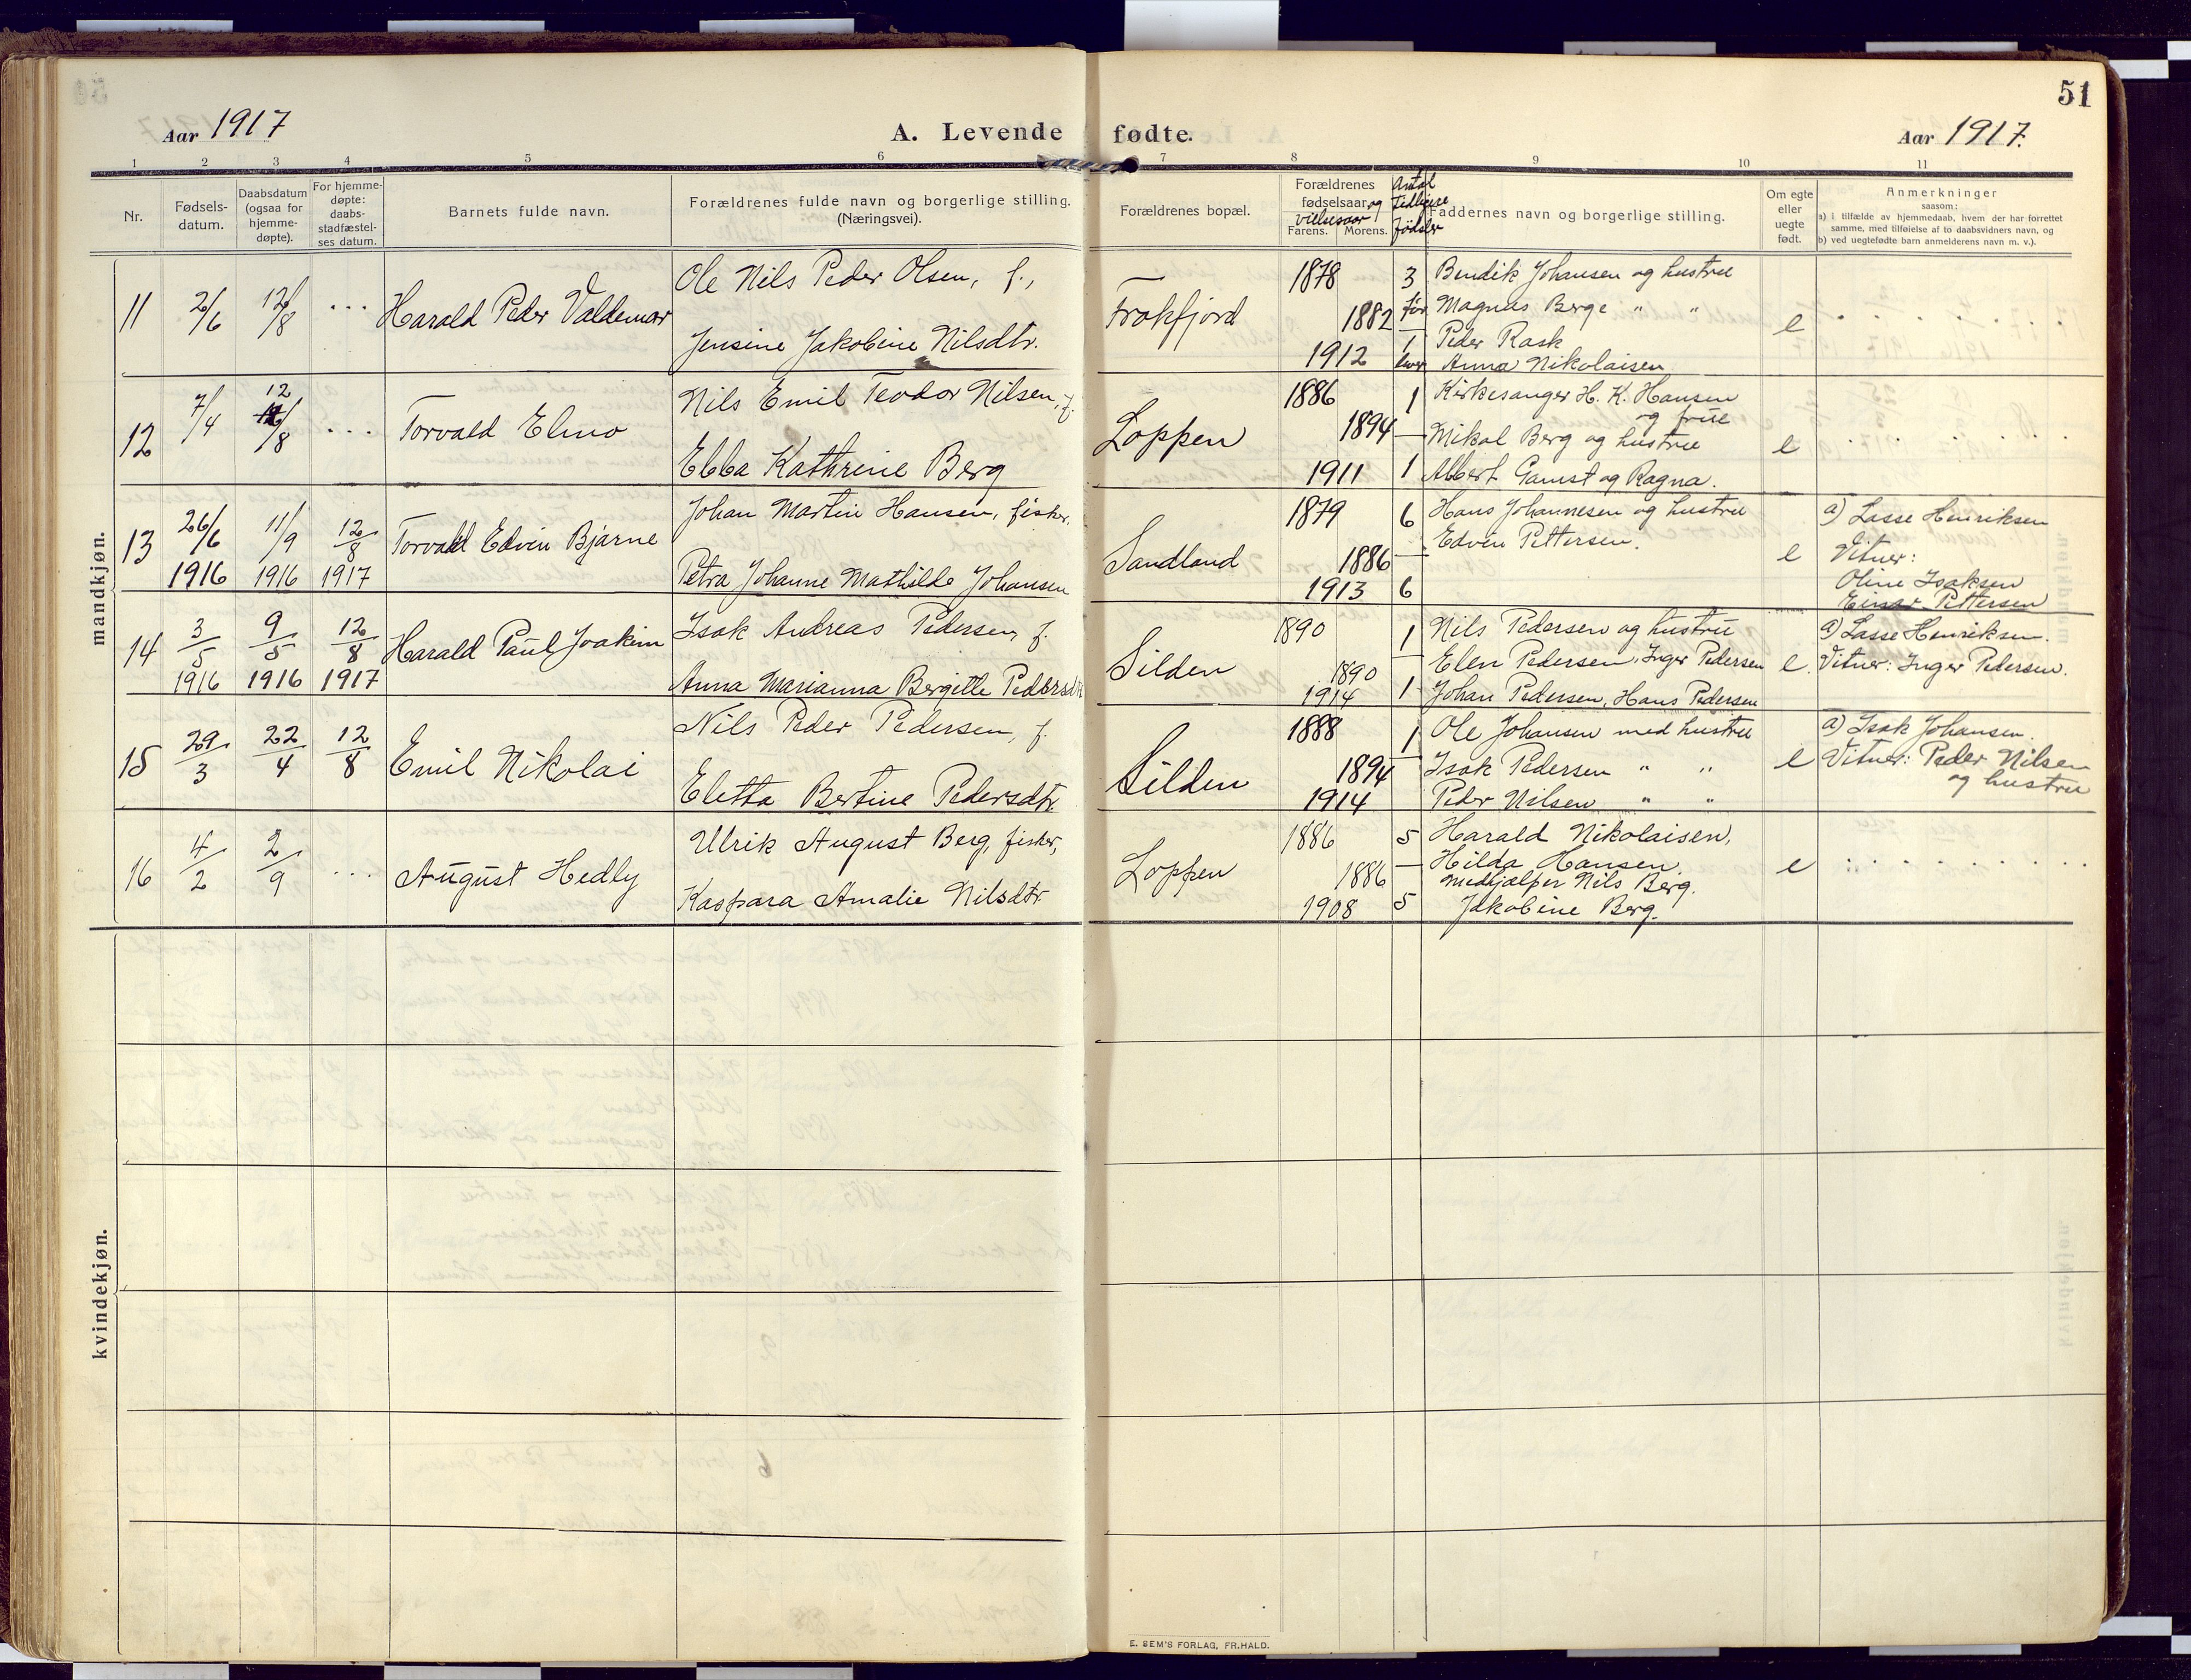 51
Aar 1917
A. Levende fødte.
Aar 1917.
1 2 3 4 5 6 7 8 9 10 11
Nr.
Fødsels-
datum.
Daabsdatum
(ogsaa for
hjemme-
døpte).
For hjemme-
døpte:
daabs-
stadfæstel-
ses datum.
Barnets fulde navn.
Forældrenes fulde navn og borgerlige stilling.
(Næringsvei).
Forældrenes bopæl.
Forældrenes
fødselsaar og
vielsesaar
Farens. Morens.
Antal
tidligere
fødsler
Faddernes navn og borgerlige stilling.
Om egte
eller
uegte
født.
Anmerkninger
saasom:
a) i tilfælde av hjemmedaab, hvem der har forrettet
samme, med tilføielse af to daabsvidners navn, og
b) ved uegtefødte barn anmelderens navn m. v.).
mandkjøn.
11 26/6 12/8 ... Harald Peder Valdemar
Ole Nils Peder Olsen, f.,
Jensine Jakobine Nilsdtr.
Frakfjord
1878 3
1882 før
1
1912
Bendik Johansen og hustru
Magnus Berge " "
Peder Rask
Anna Nikolaisen
e
12 7/4 12/8 ... Torvald Elmo
Nils Emil Teodor Nilsen, f.
Ebba Kathrine Berg
Loppen
1886 1
1894
1911 1
Kirkesanger H. K. Hansen
og frue
Mikal Berg og hustru
Albert Gamst og Ragna.
e
13 26/6 1916 11/9 1916 12/8 1917 Torvald Edvin Bjarne
Johan Martin Hansen, fisker,
Petra Johanne Mathilde Johansen
Sandland
1879 6
1886
1913 6
Hans Johannesen og hustru
Edvin Pettersen.
e
a) Lasse Henriksen
Vitner:
Oline Isaksen
Einar Pettersen
14 3/5 1916 9/5 1916 12/8 1917 Harald Paul Joakim
Isak Andreas Pedersen, f.
Anna Marianna Bergitte Pedersdtr
Silden
1890 1
1890
1914 1
Nils Pedersen og hustru
Elen Pedersen, Inger Pedersen
Johan Pedersen, Hans Pedersen
e.
a) Lasse Henriksen.
Vitner: Inger Pedersen.
15 29/3 22/4 12/8 Emil Nikolai
Nils Peder Pedersen, f.
Eletta Bertine Pedersdtr.
Silden
1888 1
1894
1914
Ole Johansen med hustru
Isak Pedersen " "
Peder Nilsen " "
e
a) Isak Johansen.
Vitner: Peder Nilsen
og hustru
16 4/2 2/9 ... August Hedly
Ulrik August Berg, fisker,
Kaspara Amalie Nilsdtr
Loppen
1886 5
1886
1908 5
Harald Nikolaisen,
Hilda Hansen.
Medhjælper Nils Berg.
Jakobine Berg.
e
kvindekjøn.
E. SEM'S FORLAG, FR.HALD.